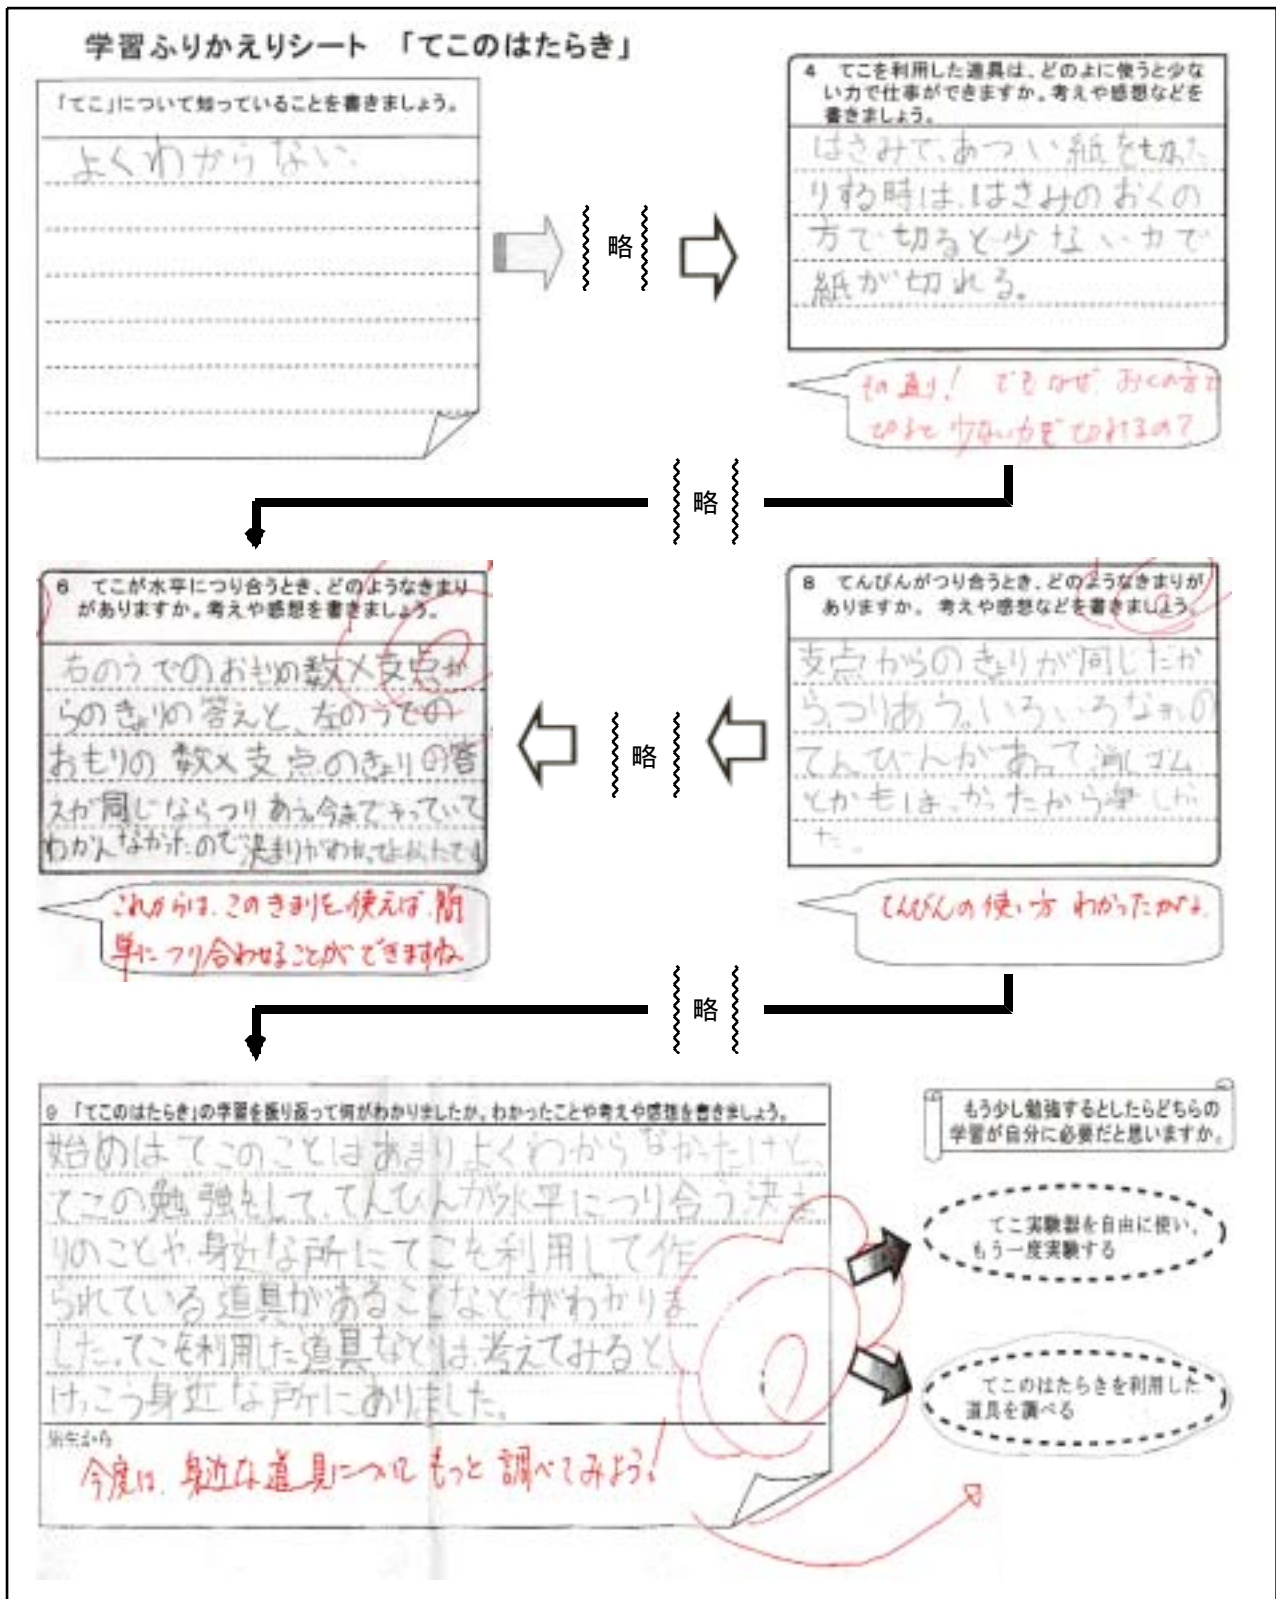 学習ふりかえりシート 「てこのはたらき」
「てこ」について知っていることを書きましょう。
よくわからない。
略
4 てこを利用した道具は、どのよに使うと少な
い力で仕事ができますか。考えや感想などを
書きましょう。
はさみで、あつい紙を切った
りする時は、はさみのおくの
方で切ると少ない力で
紙が切れる。
その通り! でもなぜ、おくの方で
切ると少ない力で切れるの?
略
6 てこが水平につり合うとき、どのようなきまり
がありますか。考えや感想を書きましょう。
右のうでのおもりの数×支点か
らのきょりの答えと、左のうでの
おもりの数×支点のきょりの答
えが同じならつりあう。今までやっていて
わかんなかったので決まりがわかってよかったです
これからは、このきまりを使えば、簡
単につり合わせることができますね
略
8 てんびんがつり合うとき、どのようなきまりが
ありますか。 考えや感想などを書きましょう。
支点からのきょりが同じだか
ら、つりあう。いろいろな
てんびんがあって消しゴム
とかもはかったから楽しかっ
た。
てんびんの使い方 わかったかな。
略
9 「てこのはたらき」の学習を振り返って何がわかりましたか。わかったことや考えや感想を書きましょう。
始めはてこのことはあまりよくわからなかったけど、
てこの勉強をして、てんびんが水平につり合う決ま
りのことや、身近な所にてこを利用して作
られている道具があることなどがわかりま
した。てこを利用した道具などは考えてみると、
けっこう身近な所にありました。
先生から
今度は、身近な道具についてもっと調べてみよう!
もう少し勉強するとしたらどちらの
学習が自分に必要だと思いますか。
てこ実験器を自由に使い、
もう一度実験する
てこのはたらきを利用した
道具を調べる